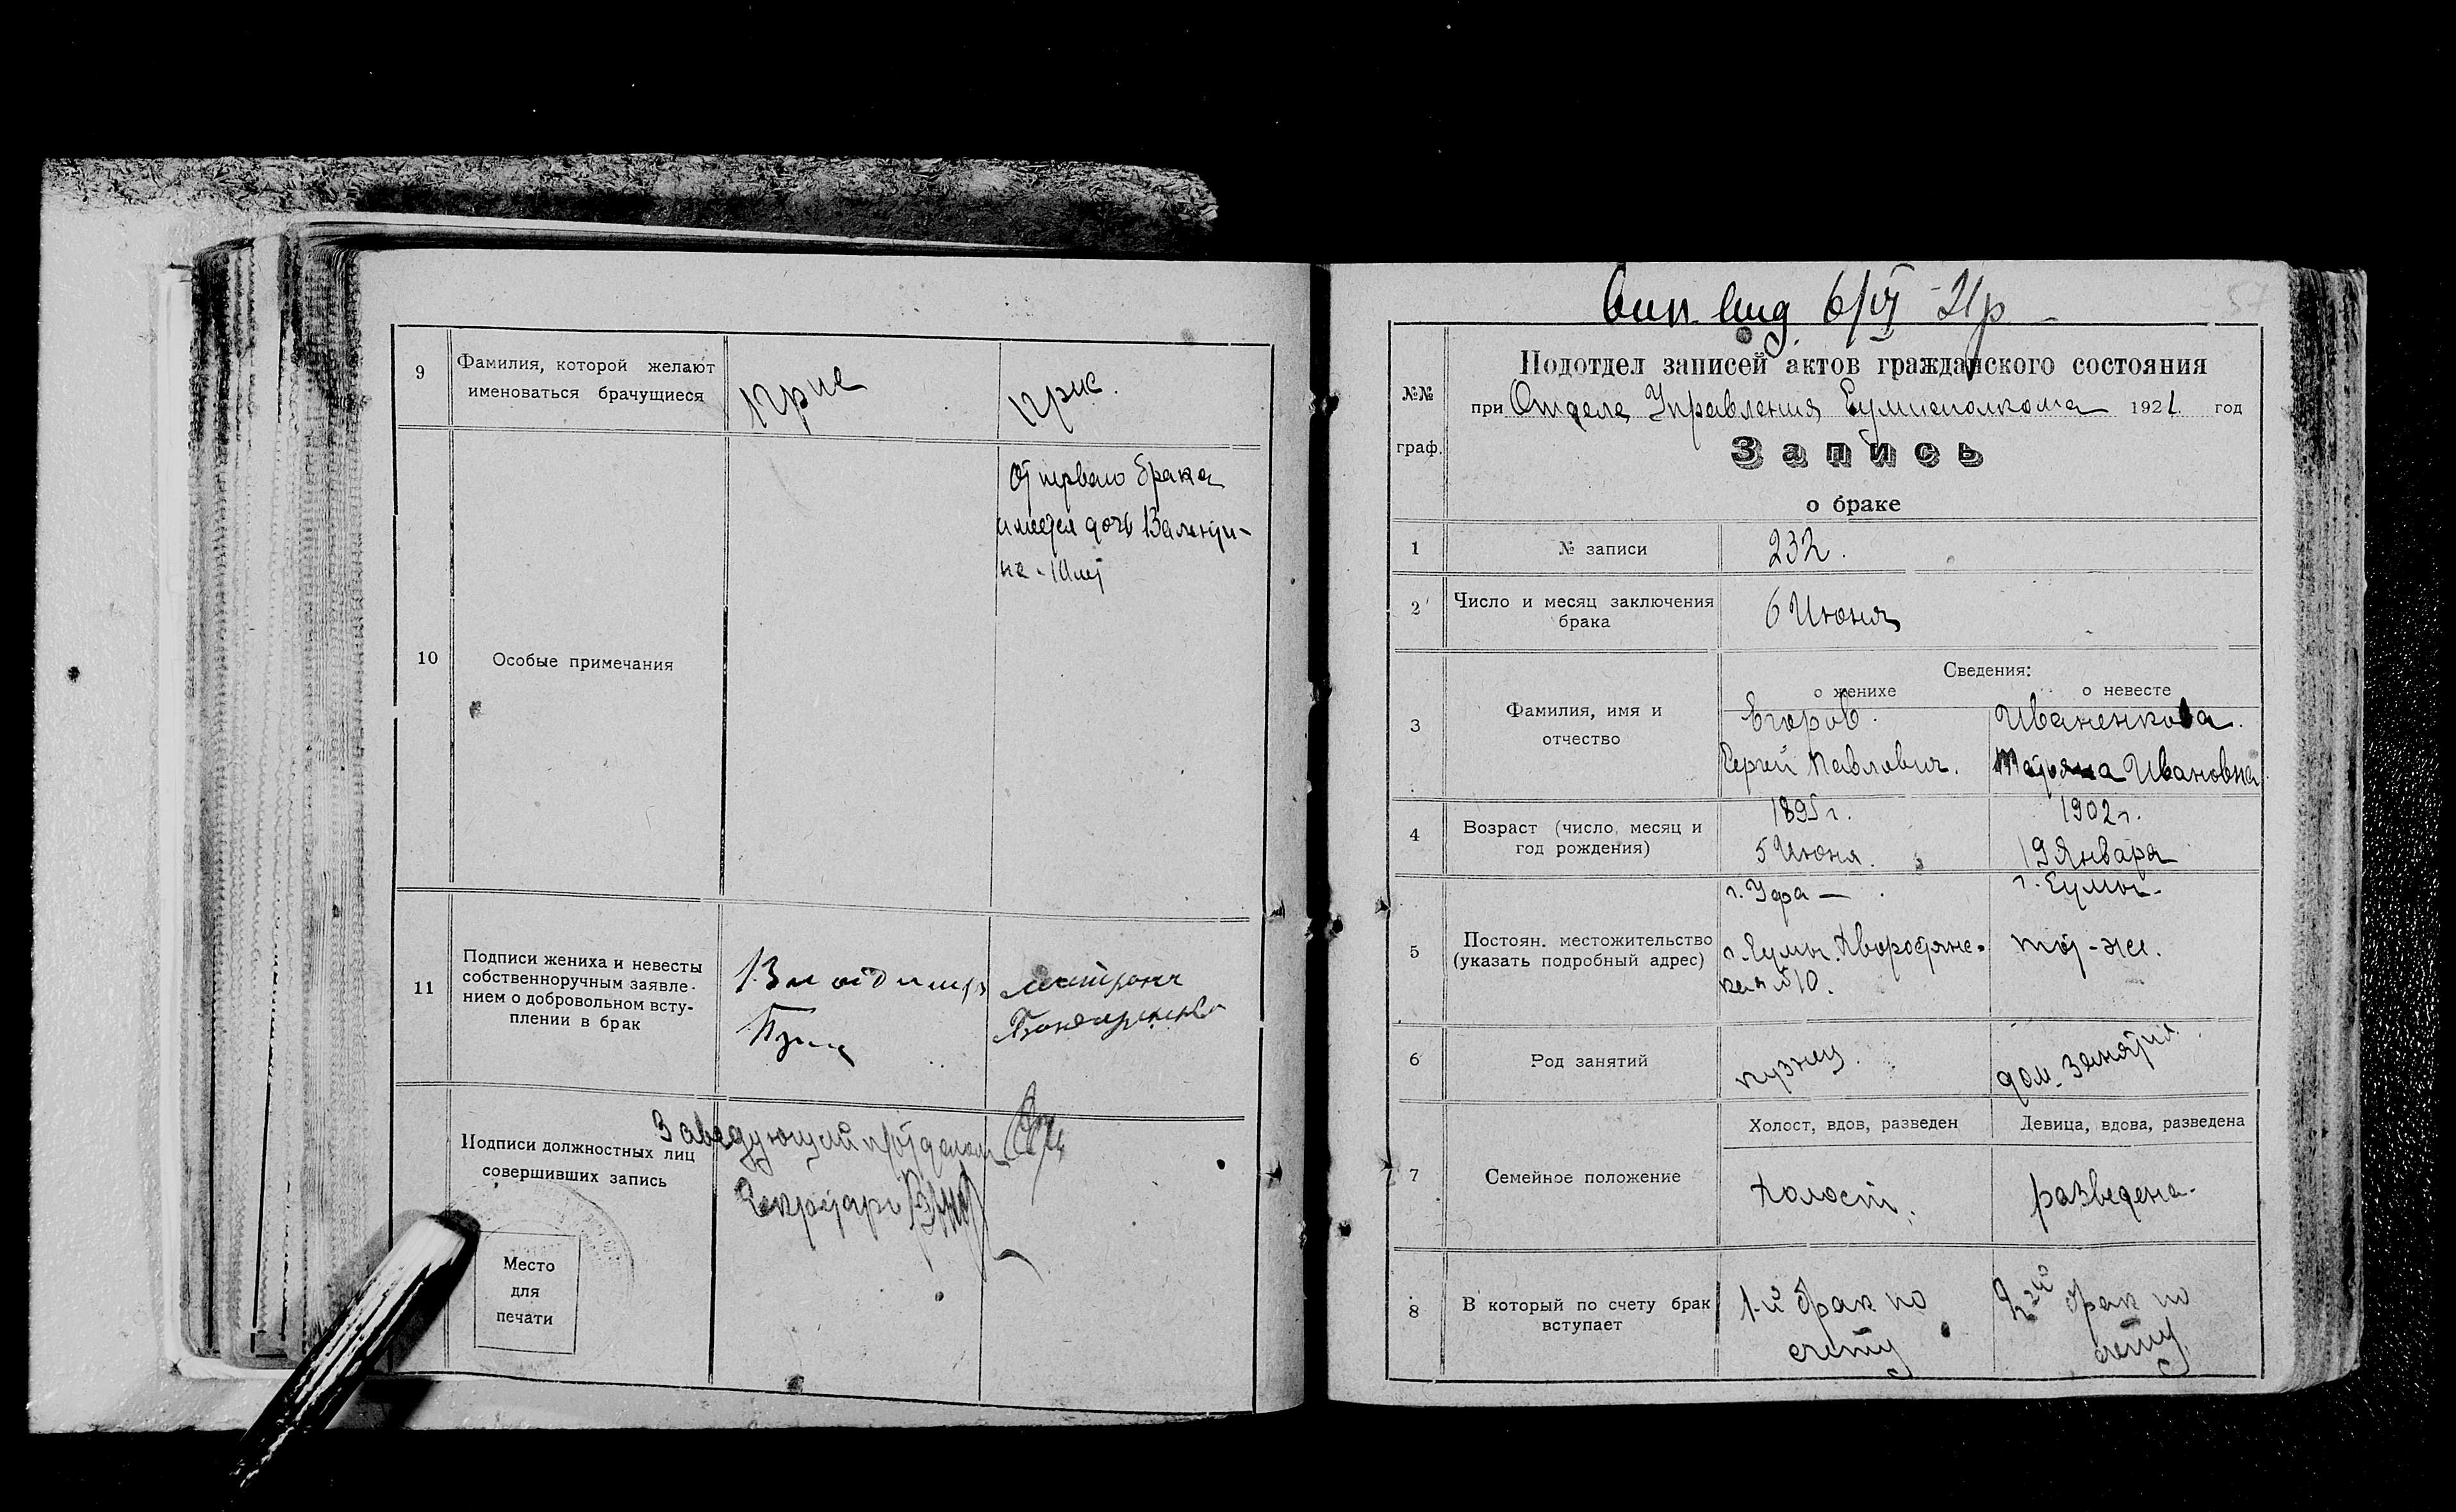 9
Фамилия, которой желают
именоваться брачущиеся
От первого брака
имеется дочь Валенти-
на - 10 лет
10
Особые примечания
11
Подписи жениха и невесты
собственноручным заявле-
нием о добровольном всту-
плении в брак
Владимир
Бондаренко
Подписи должностных лиц
совершивших запись
Заведующий п/отделом
Секретарь
Место
для
печати
57
6/VI 21р
№№
граф.
Подотдел записей актов гражданского состояния
при Отделе Управления Сумисполкома 1921 год
Запись
о браке
1
№ записи
232.
2
Число и месяц заключения
брака
6 Июня
Сведения:
о женихе
о невесте
3
Фамилия, имя и
отчество
Егоров.
Сергей Павлович.
Иваненкова.
Татьяна Ивановна
4
Возраст (число, месяц и
год рождения)
1895 г.
5 Июня.
1902 г.
19 Января
5
Постоян. местожительство
(указать подробный адрес)
г. Уфа —
г. Сумы. Дворянс-
кая № 10.
г. Сумы.
той-же.
6
Род занятий
кузнец.
дом. занятия.
7
Семейное положение
Холост, вдов, разведен
Девица, вдова, разведена
холост.
разведена.
8
В который по счету брак
вступает
1-й брак по
счету
2-й брак по
счету